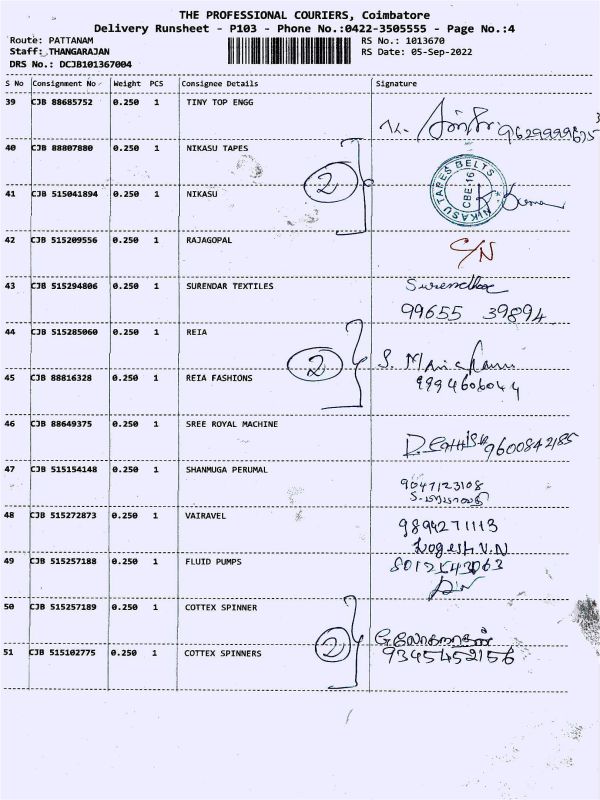 THE PROFESSIONAL COURIERS, Coimbatore
Delivery Runsheet - P103 - Phone No.:0422-3505555 - Page No.:4
Route: PATTANAM RS No.: 1013670
Staff: THANGARAJAN RS Date: 05-Sep-2022
DRS No.: DCJB101367004
S No Consignment No Weight PCS Consignee Details Signature
39 CJB 88685752 0.250 1 TINY TOP ENGG
40 CJB 88807880 0.250 1 NIKASU TAPES
2
NIKASU TAPES BELTS
CBE-16
41 CJB 515041894 0.250 1 NIKASU
42 CJB 515209556 0.250 1 RAJAGOPAL C/N
43 CJB 515294806 0.250 1 SURENDAR TEXTILES
99655 39894
44 CJB 515285060 0.250 1 REIA
2
45 CJB 88816328 0.250 1 REIA FASHIONS 9994606044
46 CJB 88649375 0.250 1 SREE ROYAL MACHINE
9600842185
47 CJB 515154148 0.250 1 SHANMUGA PERUMAL
9047123108
48 CJB 515272873 0.250 1 VAIRAVEL 9894271113
Logesh V.N
49 CJB 515257188 0.250 1 FLUID PUMPS
50 CJB 515257189 0.250 1 COTTEX SPINNER
2
51 CJB 515102775 0.250 1 COTTEX SPINNERS 9345452156